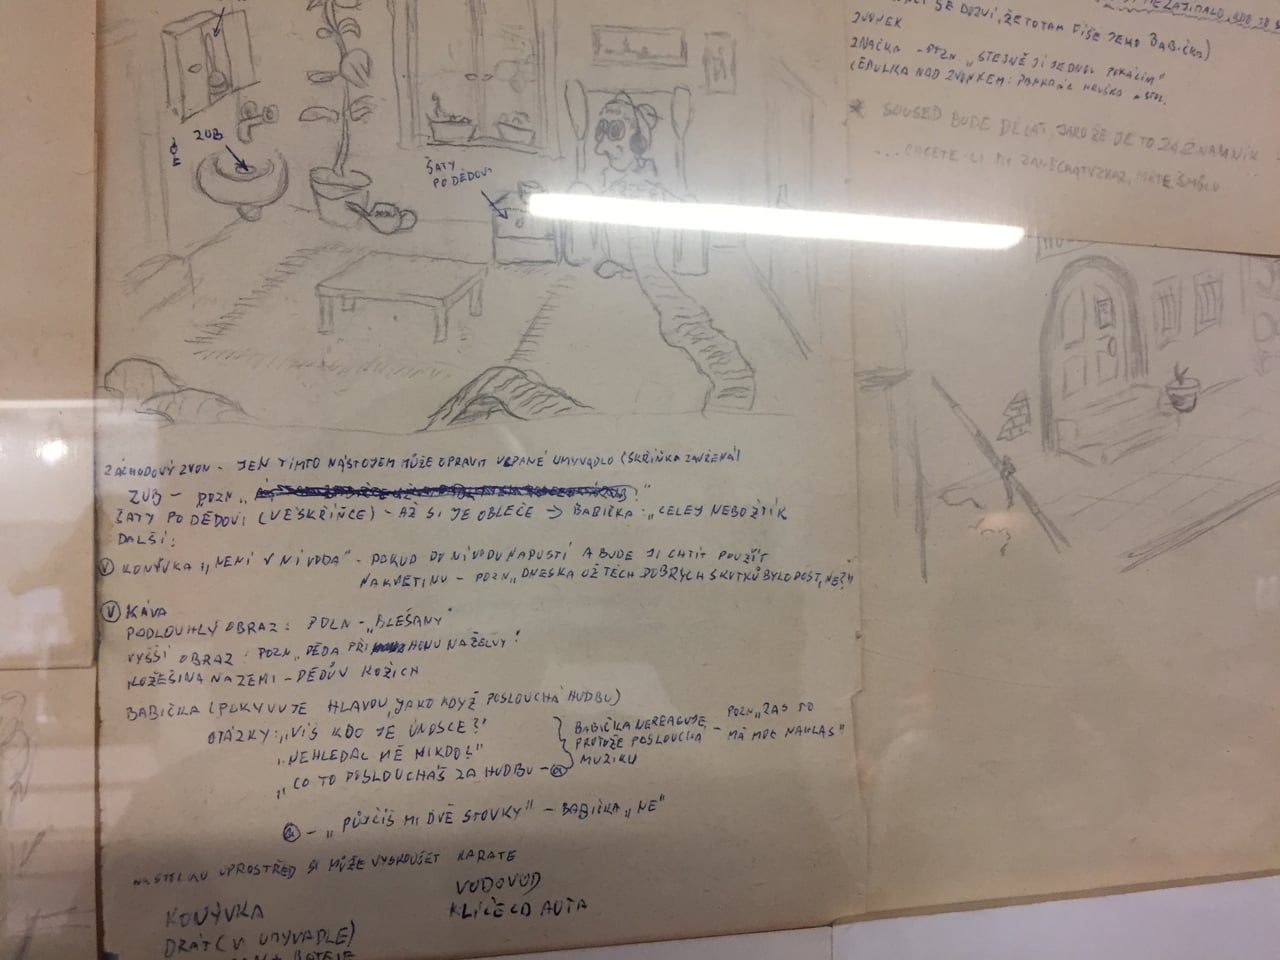 ZVONEK
ZNAČKA - POZN „STEJNĚ JI JEDNOU POKÁCÍM"
CEDULKA NAD ZVONKEM:
* SOUSED BUDE DĚLAT, JAKO ŽE JE TO ZÁZNAMNÍK
... CHCETE-LI MI ZANECHAT VZKAZ, MÁTE SMŮLU
ZUB
ŠATY
PO DĚDOVI
ZÁCHODOVÝ ZVON - JEN TÍMTO NÁSTOJEM MŮŽE OPRAVIT UCPANÉ UMYVADLO (SKŘÍŇKA ZAVŘENÁ)
ZUB - POZN „
ŠATY PO DĚDOVI (VE SKŘÍŇCE) - AŽ SI JE OBLEČE → BABIČKA: „CELEJ NEBOŽTÍK
DALŠÍ:
V KONÝVKA „NENÍ V NÍ VODA" - POKUD DO NÍ VODU NAPUSTÍ A BUDE JI CHTÍT POUŽÍT
NA KVĚTINU - POZN „DNESKA UŽ TĚCH DOBRÝCH SKUTKŮ BYLO DOST, NE?"
V KÁVA
PODLOUHLÝ OBRAZ: POZN - „BLEŠANY"
VYŠŠÍ OBRAZ: POZN „DĚDA PŘI HONU NA ŽELVY!
KOŽEŠINA NA ZEMI - DĚDŮV KOŽICH
BABIČKA (POKYVUJE HLAVOU, JAKO KDYŽ POSLOUCHÁ HUDBU)
OTÁZKY: „VÍŠ KDO JE ÚNOSCE?"
„NEHLEDAL MĚ NIKDO?"
„CO TO POSLOUCHÁŠ ZA HUDBU -
BABIČKA NEREAGUJE,
PROTOŽE POSLOUCHÁ
MUZIKU
- POZN „ZAS TO
MÁ MOC NAHLAS"
- „PŮJČÍŠ MI DVĚ STOVKY" - BABIČKA „NE"
NA STOLKU UPROSTŘED SI MŮŽE VYZKOUŠET KARATE
KONÝVKA
DRÁT (V UMYVADLE)
VODOVOD
KLÍČE OD AUTA